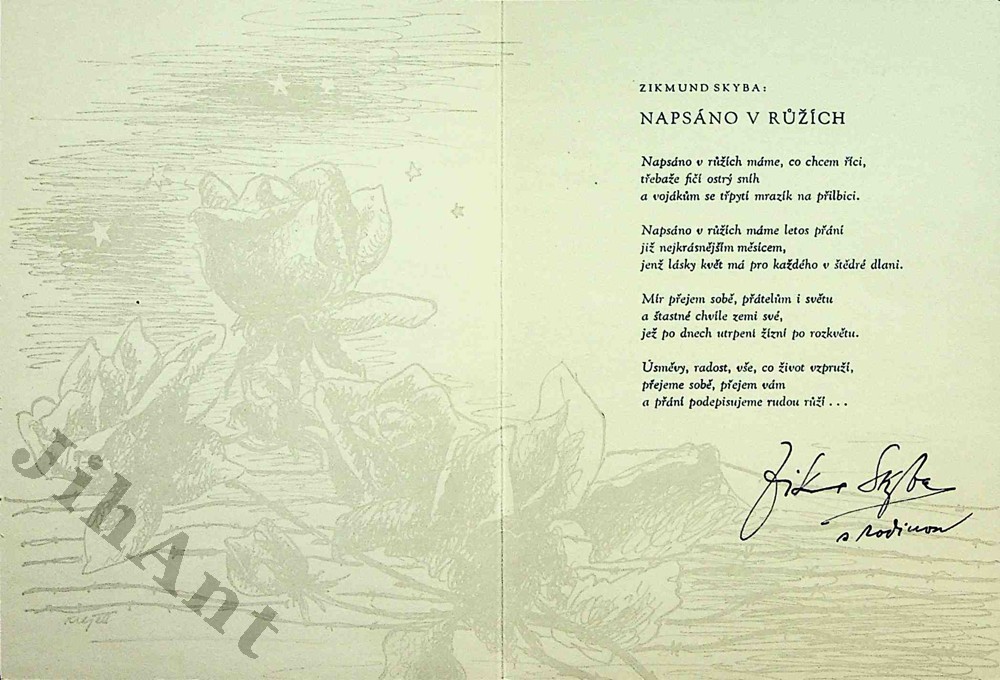 ZIKMUND SKYBA:
NAPSÁNO V RŮŽÍCH
Napsáno v růžích máme, co chcem říci,
třebaže fičí ostrý sníh
a vojákům se třpytí mrazík na přilbici.
Napsáno v růžích máme letos přání
již nejkrásnějším měsícem,
jenž lásky květ má pro každého v štědré dlani.
Mír přejem sobě, přátelům i světu
a šťastné chvíle zemi své,
jež po dnech utrpení žízní po rozkvětu.
Úsměvy, radost, vše, co život vzpruží,
přejeme sobě, přejem vám
a přání podepisujeme rudou růží . . .
Skyba
s rodinou
JihAnt